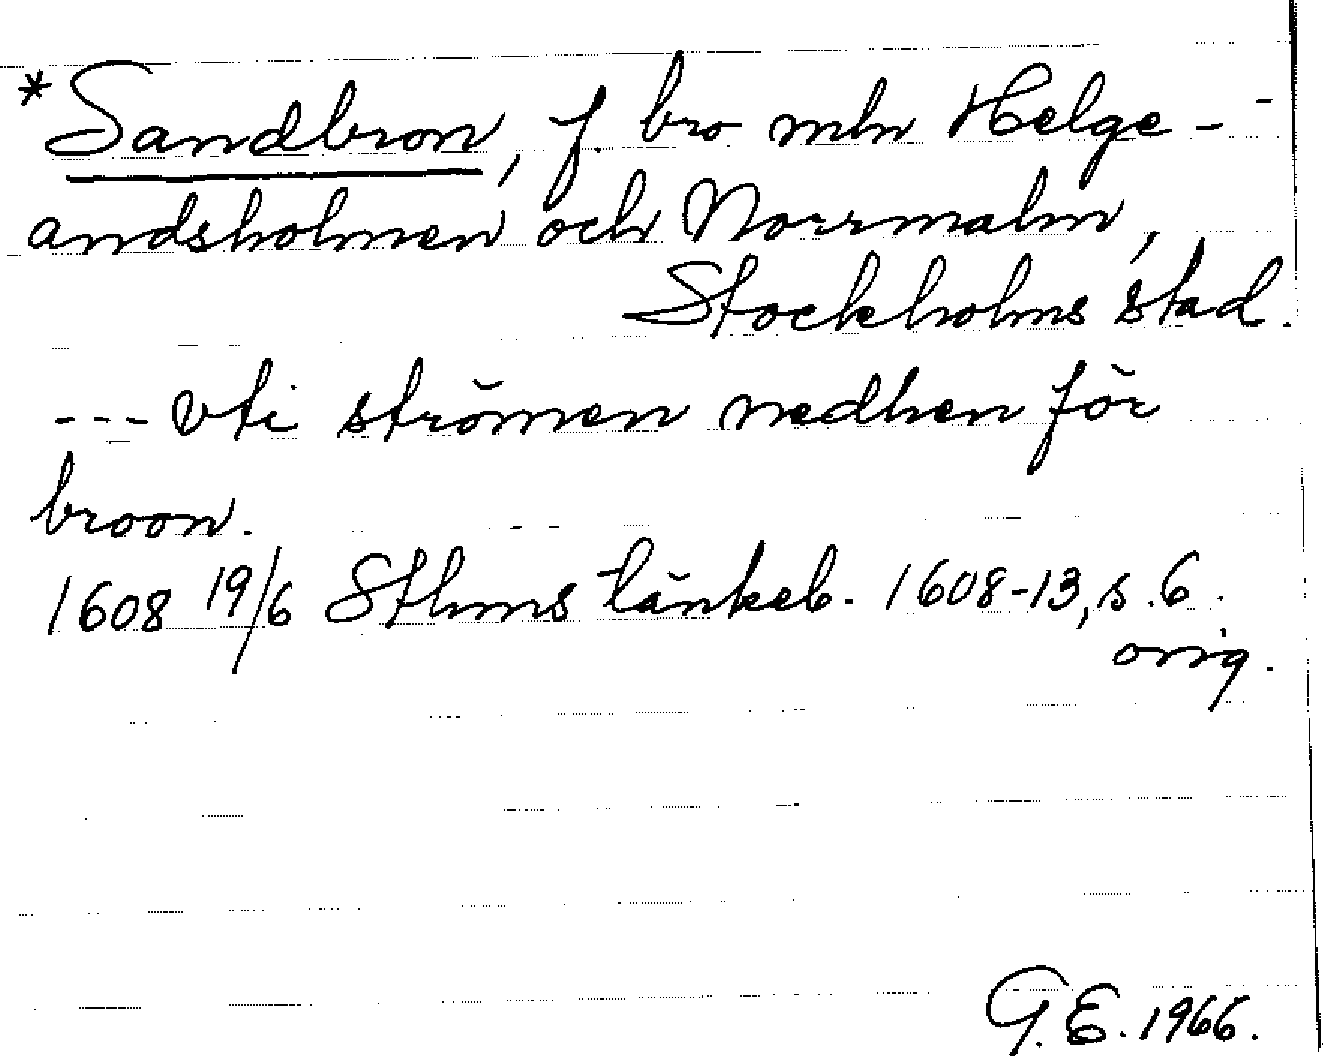 *Sandbron, f. bro mln Helge-
andsholmen och Norrmalm,
Stockholms stad.
--- vti strömen nedhen för
broon.
1608 19/6 Sthms tänkeb. 1608-13, s. 6.
orig.
G.E. 1966.